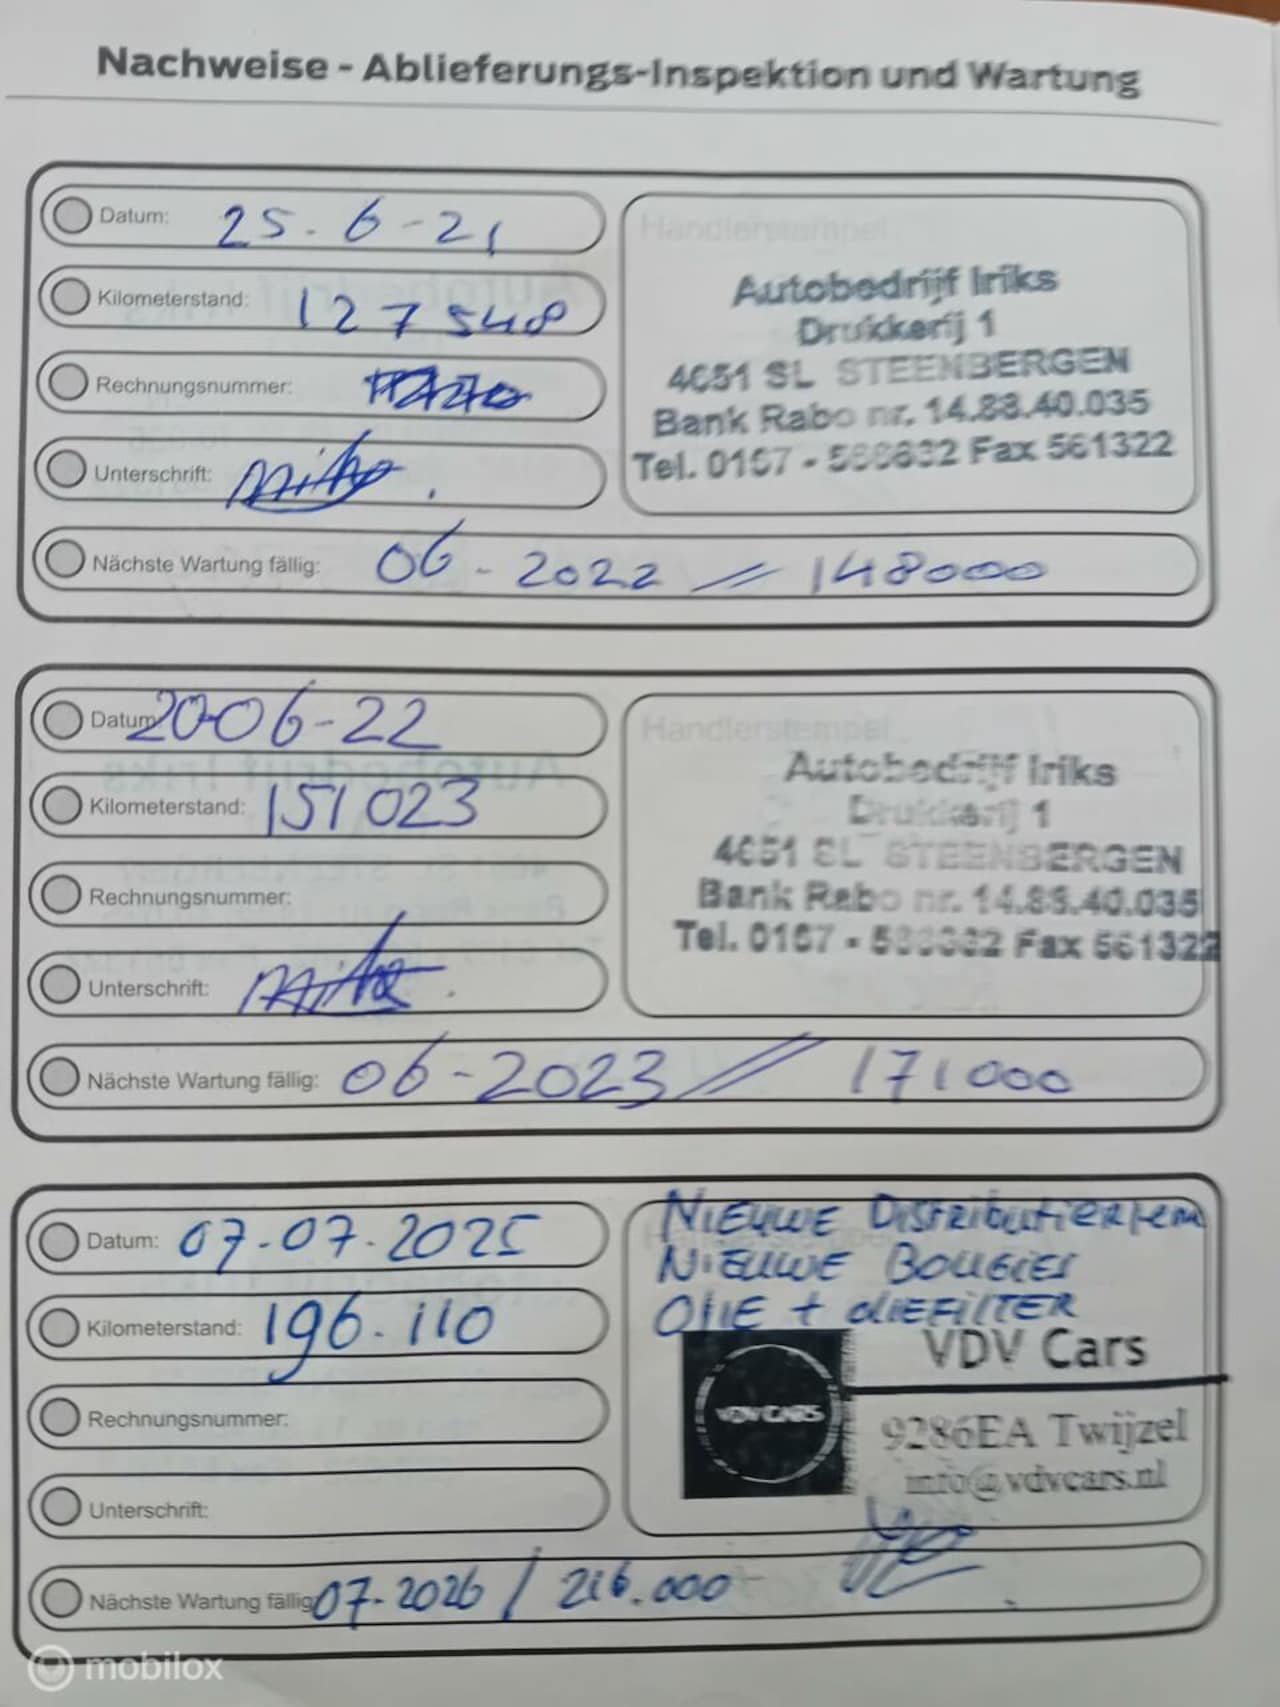 Nachweise - Ablieferungs-Inspektion und Wartung
Datum: 25.6-21
Kilometerstand: 127548
Rechnungsnummer:
Unterschrift:
Nächste Wartung fällig: 06-2022 // 148000
Händlerstempel
Autobedrijf Iriks
Drukkerij 1
4651 SL STEENBERGEN
Bank Rabo nr. 14.88.40.035
Tel. 0167 - Fax 561322
Datum: 20-06-22
Kilometerstand: 151023
Rechnungsnummer:
Unterschrift:
Nächste Wartung fällig: 06-2023 // 171000
Händlerstempel
Autobedrijf Iriks
Drukkerij 1
4651 SL STEENBERGEN
Bank Rabo nr. 14.88.40.035
Tel. 0167 - Fax 561322
Datum: 07.07.2025
Kilometerstand: 196.110
Rechnungsnummer:
Unterschrift:
Nächste Wartung fällig: 07-2026 / 216.000
NIEUWE DISTRIBUTIERIEM
NIEUWE BOUGIES
OLIE + OLIEFILTER
VDV Cars
VDV CARS
9286EA Twijzel
info@vdvcars.nl
mobilox